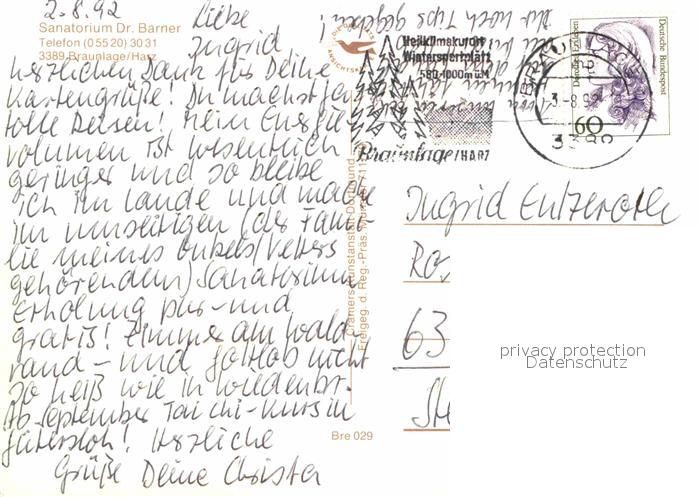 2.8.92
Sanatorium Dr. Barner
Telefon (0 55 20) 30 31
3389 Braunlage/Harz
Liebe
Ingrid
herzlichen Dank für Deine
Kartengrüße! Du machst ja
tolle Reisen! Mein Energie-
volumen ist wesentlich
geringer und so bleibe
ich im Lande und mache
im umseitigen (der Fami-
lie meines Onkels/Vetters
gehörenden) Sanatorium
Erholung pur - und
gratis! Zimmer am Wald
rand - und gottlob nicht
so heiß wie in Wiedenbr.
Ab September Tai chi-Kurs in
Gütersloh! Herzliche
Grüße Deine Christa
Ihr noch Tips geben!
Heilklimakurort
Wintersportplatz
560-1000m ü.M
Braunlage/HARZ
Deutsche Bundespost
60
-8.92
3389
Cramers Kunstanstalt Dortmund
Freigeg. d. Reg.-Präs. Münster
Bre 029
Ingrid Entzeroth
63
privacy protection
Datenschutz